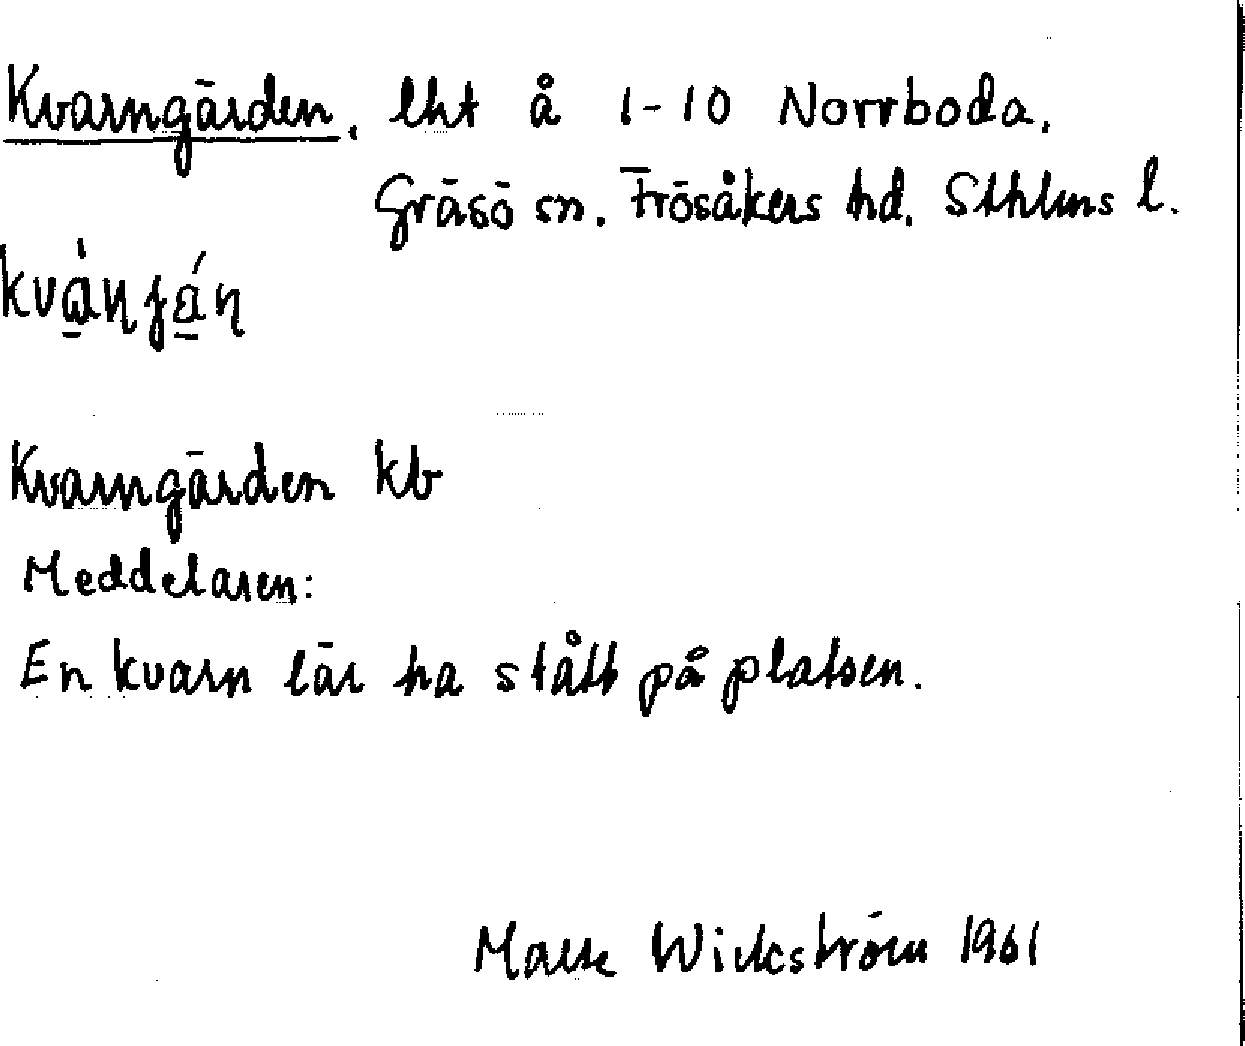 Kvarngärden, lht å 1-10 Norrboda.
Gräsö sn. Frösåkers hd. Sthlms l.
Kvarngärden kb
Meddelaren:
En kvarn lär ha stått på platsen.
Wickström 1961